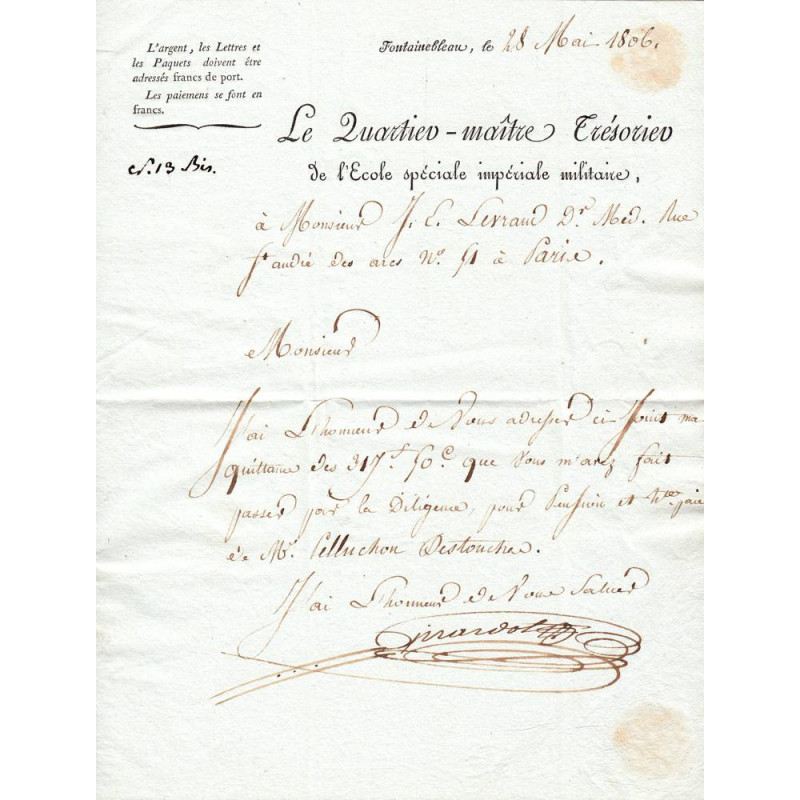 L'argent, les Lettres et
les Paquets doivent être
adressés francs de port.
Les paiemens se font en
francs.
N.º 13 Bis.
Fontainebleau, le 28 Mai 1806.
Le Quartier-maître Trésorier
de l'Ecole spéciale impériale militaire,
à Monsieur J. E. Levraud Dr. Med. Rue
St andré des arcs No. 51 à Paris.
Monsieur
J'ai L'honneur de Vous adresser ci Joint ma
quittance des 317f. 50c. que Vous m'avez fait
passer par la Diligence, pour Pension et
de Mr. Pelluchon Destouches.
J'ai L'honneur de Vous Saluer
Girardot